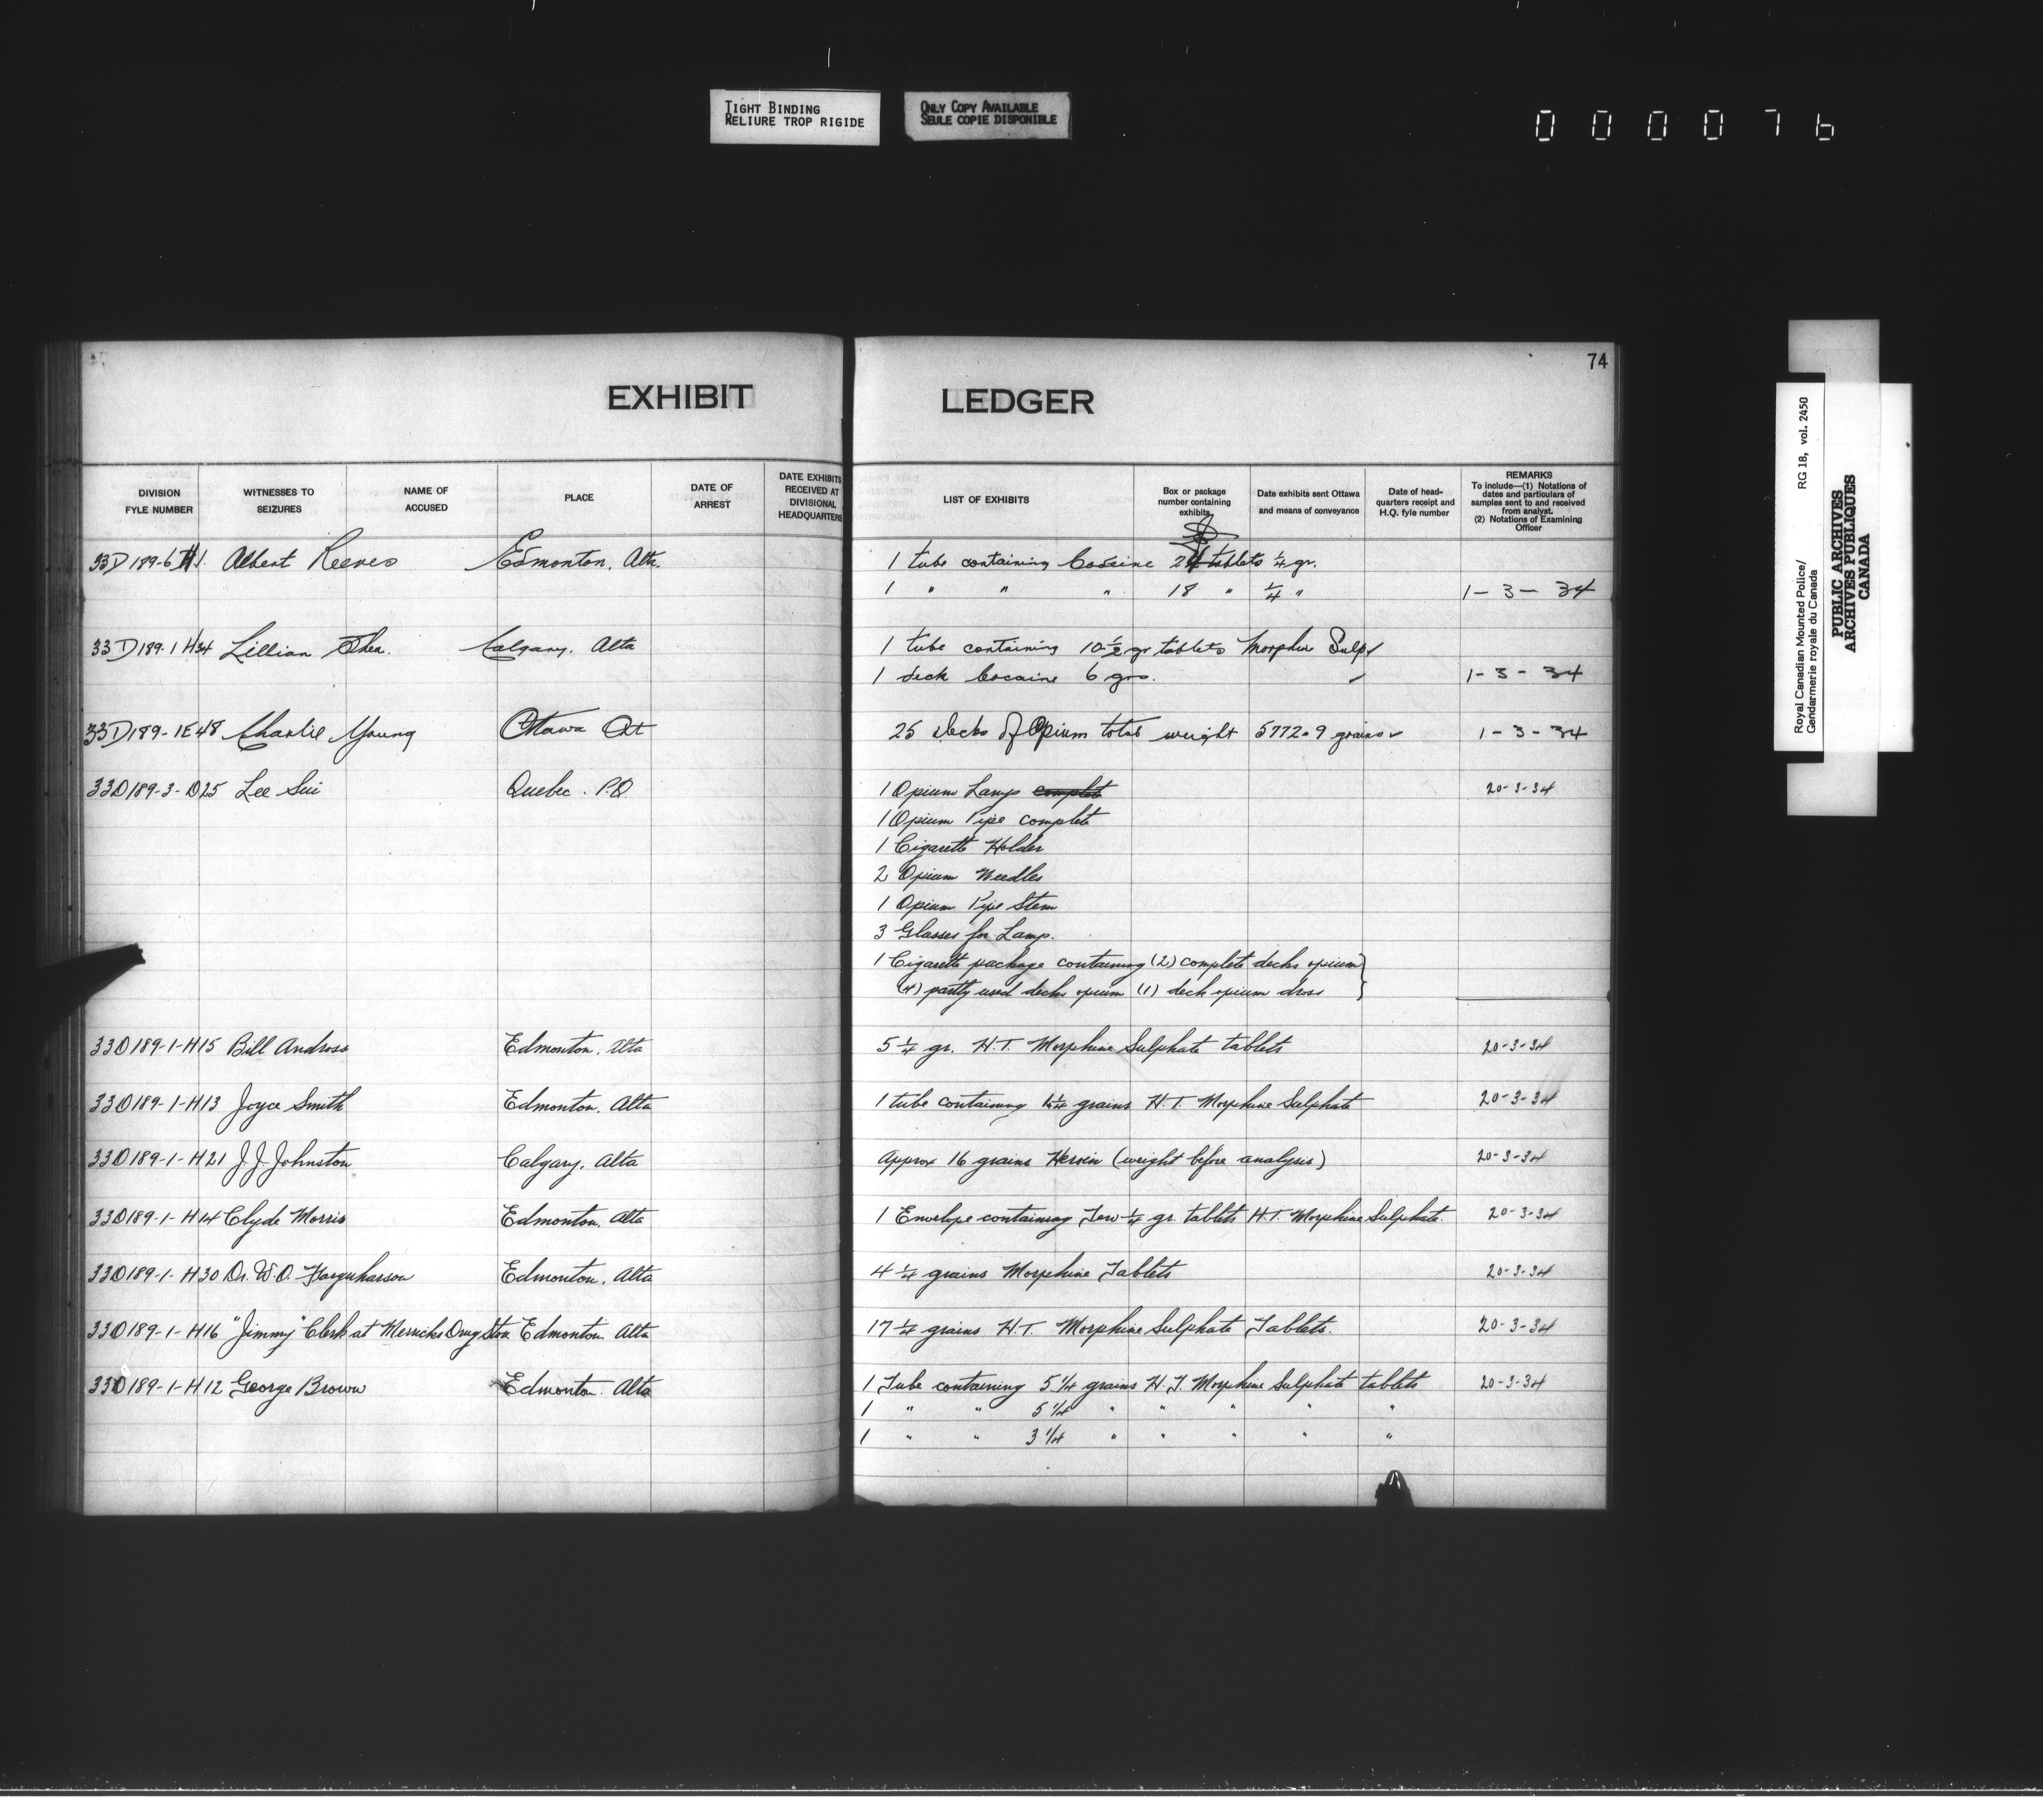 TIGHT BINDING
RELIURE TROP RIGIDE
ONLY COPY AVAILABLE
SEULE COPIE DISPONIBLE
000076
74
EXHIBIT LEDGER
DIVISION FYLE NUMBER
WITNESSES TO SEIZURES
NAME OF ACCUSED
PLACE
DATE OF ARREST
DATE EXHIBITS RECEIVED AT DIVISIONAL HEADQUARTERS
LIST OF EXHIBITS
Box or package number containing exhibits
Date exhibits sent Ottawa and means of conveyance
Date of head-quarters receipt and H.Q. fyle number
REMARKS
To include—(1) Notations of dates and particulars of samples sent to and received from analyst.
(2) Notations of Examining Officer
33D 189-6 H1. Albert Reeves Edmonton, Alta. 1 tube containing Cocaine tablets ¼ gr.
1 " " " 18 " ¼ " 1-3-34
33D 189-1 H34 Lillian Shea. Calgary, Alta 1 tube containing 10 ½ gr tablets Morphine Sulp
1 deck Cocaine 6 grs. ✓ 1-3-34
33D 189-1E48 Charlie Young Ottawa Ont 25 decks of Opium total weight 5772.9 grains ✓ 1-3-34
33D 189-3-D25 Lee Sui Quebec. P.Q. 1 Opium Lamp complete 20-3-34
1 Opium Pipe complete
1 Cigarette Holder
2 Opium Needles
1 Opium Pipe Stem
3 Glasses for Lamp.
1 Cigarette package containing (2) complete decks opium
(4) partly used decks opium (1) deck opium dross
33D 189-1-H15 Bill Andross Edmonton, Alta 5 ¼ gr. H.T. Morphine Sulphate tablets 20-3-34
33D 189-1-H13 Joyce Smith Edmonton, Alta 1 tube containing ¼ grains H.T. Morphine Sulphate 20-3-34
33D 189-1-H21 J.J. Johnston Calgary, Alta Approx 16 grains Heroin (weight before analysis) 20-3-34
33D 189-1-H14 Clyde Morris Edmonton, Alta 1 Envelope containing ¼ gr. tablets H.T. Morphine Sulphate. 20-3-34
33D 189-1-H30 Dr. W.O. Farquharson Edmonton, Alta 4 ¼ grains Morphine Tablets 20-3-34
33D 189-1-H16 "Jimmy" Clerk at Merricks Drug Store Edmonton. Alta 17 ¼ grains H.T. Morphine Sulphate Tablets. 20-3-34
33D 189-1-H12 George Brown Edmonton. Alta 1 Tube containing 5 1/4 grains H.T. Morphine Sulphate tablets 20-3-34
1 " " 5 1/4 " " " " "
1 " " 3 1/4 " " " " "
Royal Canadian Mounted Police/
Gendarmerie royale du Canada
RG 18, vol. 2450
PUBLIC ARCHIVES
ARCHIVES PUBLIQUES
CANADA